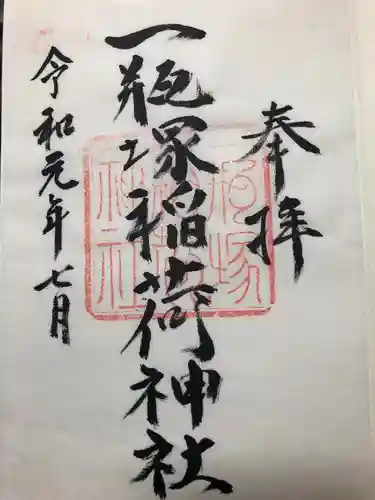 奉拝
一瓶塚稲荷神社
令和元年七月